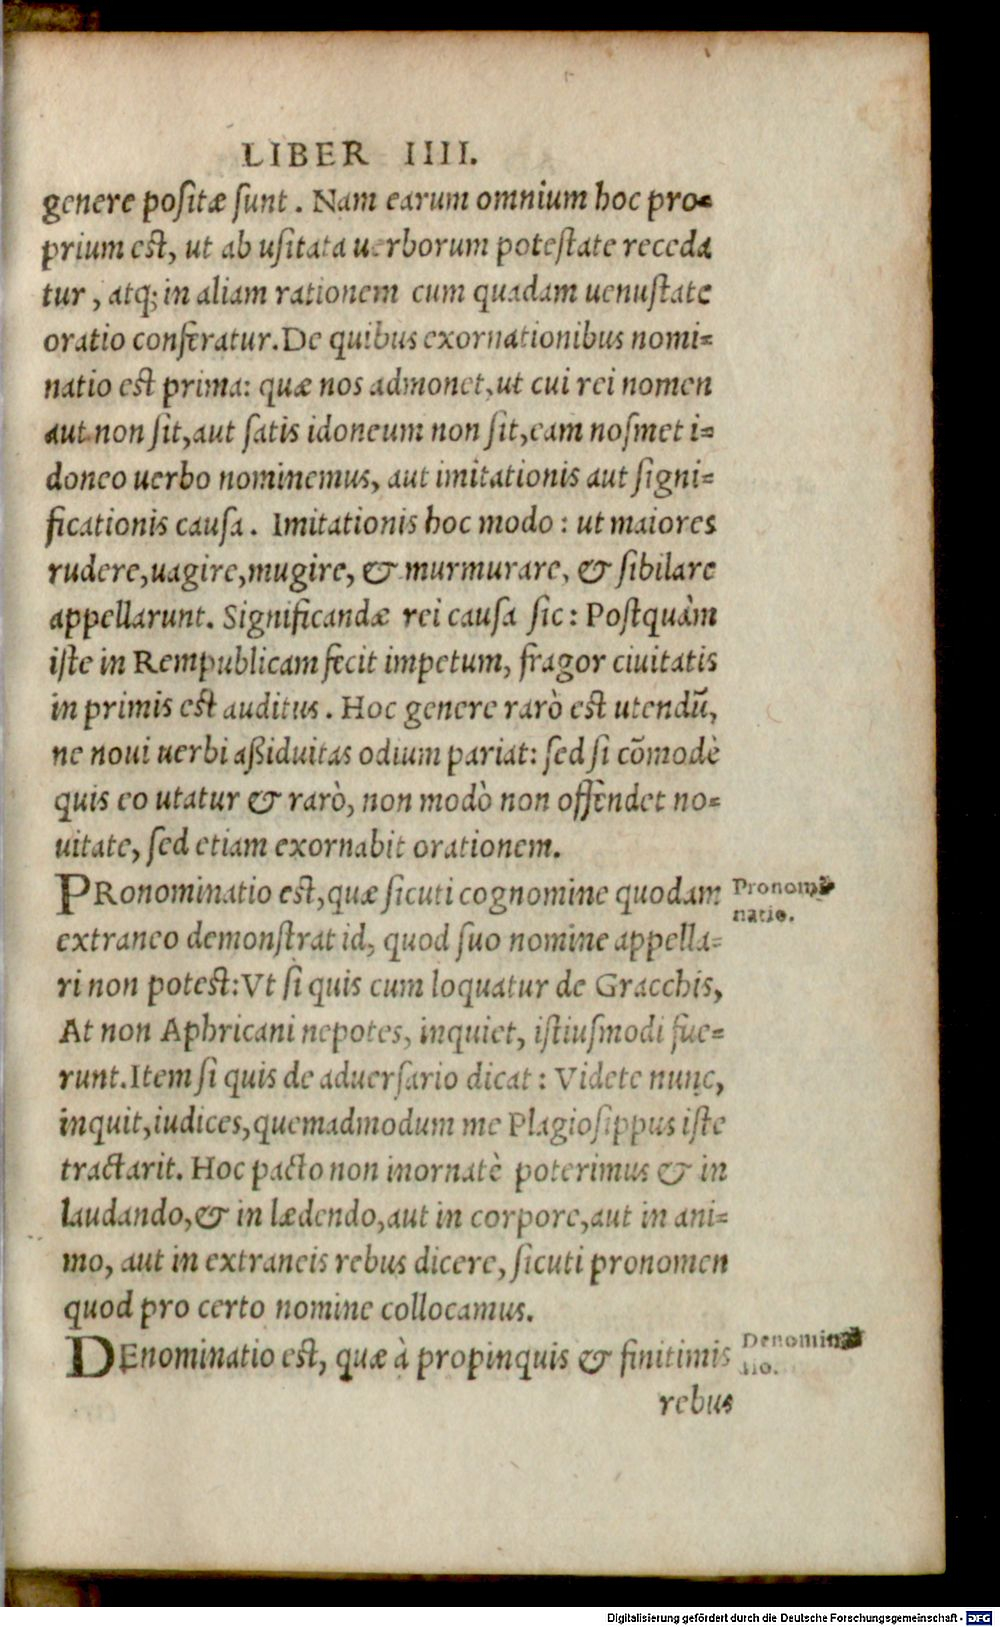 LIBER IIII.
genere positæ sunt. Nam earum omnium hoc pro=
prium est, ut ab usitata uerborum potestate receda
tur, atq; in aliam rationem cum quadam uenustate
oratio conferatur. De quibus exornationibus nomi=
natio est prima: quæ nos admonet, ut cui rei nomen
aut non sit, aut satis idoneum non sit, eam nosmet i=
doneo uerbo nominemus, aut imitationis aut signi=
ficationis causa. Imitationis hoc modo: ut maiores
rudere, uagire, mugire, & murmurare, & sibilare
appellarunt. Significandæ rei causa sic: Postquàm
iste in Rempublicam fecit impetum, fragor ciuitatis
in primis est auditus. Hoc genere rarò est utendū,
ne noui uerbi aßiduitas odium pariat: sed si cōmodè
quis eo utatur & rarò, non modò non offendet no=
uitate, sed etiam exornabit orationem.
PRonominatio est, quæ sicuti cognomine quodam
Pronomi=
natio.
extraneo demonstrat id, quod suo nomine appella=
ri non potest: Vt si quis cum loquatur de Gracchis,
At non Aphricani nepotes, inquiet, istiusmodi fue=
runt. Item si quis de aduersario dicat: Videte nunc,
inquit, iudices, quemadmodum me Plagiosippus iste
tractarit. Hoc pacto non inornatè poterimus & in
laudando, & in lædendo, aut in corpore, aut in ani=
mo, aut in extraneis rebus dicere, sicuti pronomen
quod pro certo nomine collocamus.
DEnominatio est, quæ à propinquis & finitimis
Denomina
tio.
rebus
Digitalisierung gefördert durch die Deutsche Forschungsgemeinschaft - DFG